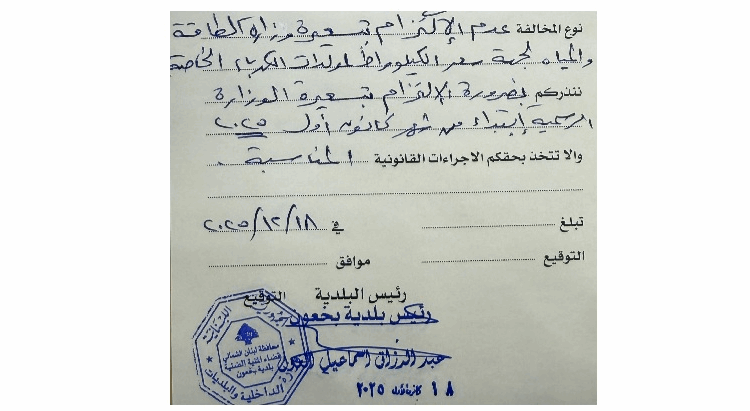 نوع المخالفة عدم الإلتزام بتسعيرة وزارة الطاقة
والمياه لجهة سعر الكيلو واط لمولدات الكهرباء الخاصة
ننذركم بضرورة الإلتزام بتسعيرة الوزارة
الرسمية إبتداءً من شهر كانون أول ٢٠٢٥
والا تتخذ بحقكم الاجراءات القانونية المناسبة.
تبلغ في ٢٠٢٥/١٢/١٨
التوقيع موافق
رئيس البلدية
التوقيع
رئيس بلدية بخعون
عبد الرزاق اسماعيل
١٨ كانون الأول ٢٠٢٥
محافظة لبنان الشمالي
قضاء المنية الضنية
بلدية بخعون
الداخلية والبلديات